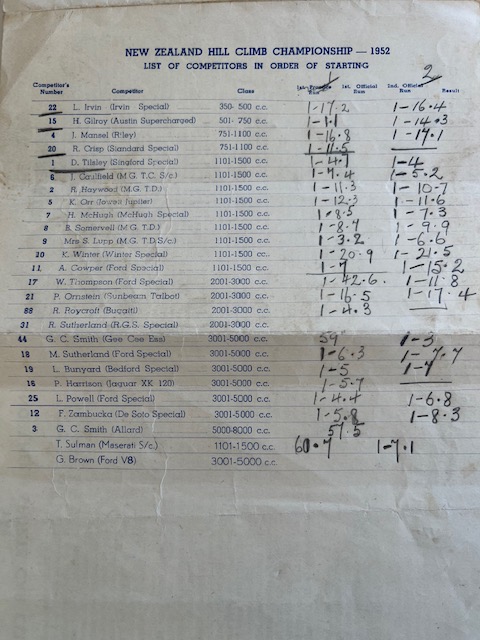 NEW ZEALAND HILL CLIMB CHAMPIONSHIP — 1952
LIST OF COMPETITORS IN ORDER OF STARTING
1 2
Competitor's Number Competitor Class 1st Official Run 2nd Official Run Result
22 L. Irvin (Irvin Special) 350- 500 c.c. 1-17.2 1-16.4
15 H. Gilroy (Austin Supercharged) 501- 750 c.c. 1-1.1 1-14.3
4 J. Mansel (Riley) 751-1100 c.c. 1-16.8 1-17.1
20 R. Crisp (Standard Special) 751-1100 c.c. 1-11.5
1 D. Tilsley (Singford Special) 1101-1500 c.c. 1-4.1 1-4
6 J. Caulfield (M.G. T.C. S/c.) 1101-1500 c.c. 1-7.4 1-5.2
2 R. Haywood (M.G. T.D.) 1101-1500 c.c. 1-11.3 1-10.7
5 K. Orr (Jowett Jupiter) 1101-1500 c.c. 1-12.3 1-11.6
7 H. McHugh (McHugh Special) 1101-1500 c.c. 1-8.5 1-7.3
8 B. Somervell (M.G. T.D.) 1101-1500 c.c. 1-8.7 1-9.9
9 Mrs S. Lupp (M.G. T.D. S/c.) 1101-1500 c.c. 1-3.2 1-6.6
10 K. Winter (Winter Special) 1101-1500 cc. 1-20.9 1-21.5
11 A. Cowper (Ford Special) 1101-1500 c.c. 1-7 1-15.2
17 W. Thompson (Ford Special) 2001-3000 c.c. 1-42.6. 1-11.8
21 P. Ornstein (Sunbeam Talbot) 2001-3000 c.c. 1-16.5 1-17.4
88 R. Roycroft (Bugatti) 2001-3000 c.c. 1-4.3
31 R. Sutherland (R.G.S. Special) 2001-3000 c.c.
44 G. C. Smith (Gee Cee Ess) 3001-5000 c.c. 59" 1-3
18 M. Sutherland (Ford Special) 3001-5000 c.c. 1-6.3 1-7.7
19 L. Bunyard (Bedford Special) 3001-5000 c.c. 1-5 1-7
16 P. Harrison (Jaguar XK 120) 3001-5000 c.c. 1-5.7
25 L. Powell (Ford Special) 3001-5000 c.c. 1-4.4 1-6.8
12 F. Zambucka (De Soto Special) 3001-5000 c.c. 1-5.8 1-8.3
3 G. C. Smith (Allard) 5000-8000 c.c. 57.5
T. Sulman (Maserati S/c.) 1101-1500 c.c. 60.7 1-7.1
G. Brown (Ford V8) 3001-5000 c.c.